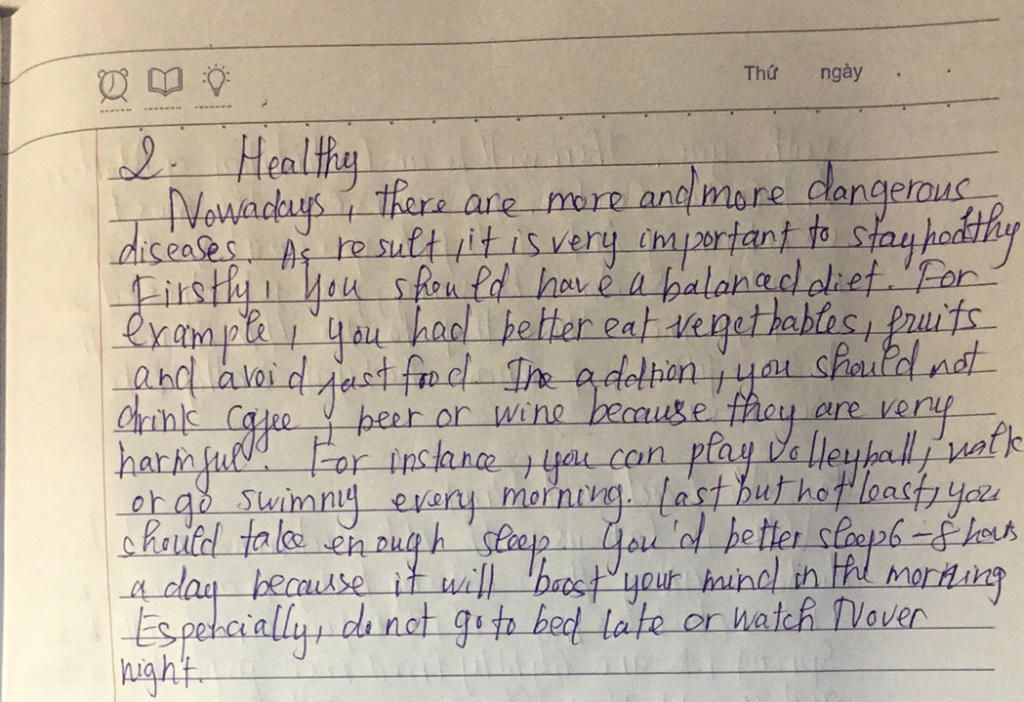 Thứ ngày . .
2. Healthy
Nowadays, there are more and more dangerous
diseases. As result, it is very important to stay heatthy
Firstly, you should have a balanced diet. For
example, you had better eat vegethables, fruits
and avoid fast food. Ine addition, you should not
drink coffee, beer or wine because they are very
harmful. For instance, you can play volleyball, walk
or go swimmy every morning. Last but not least, you
should take enough sleep. You'd better sleep 6-8 hours
a day because it will boost your mind in the morning
Espencially, do not go to bed late or watch TV over
night.